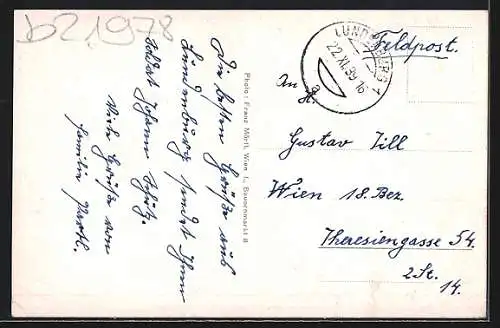 b21978
Die besten Grüße aus
Lundenburg sendet Ihnen
Soldat Johann
Viele Grüße von
Familie
Photo: Franz Mörtl, Wien I., Bauernmarkt 8
LUNDENBURG 1
22.XI.39.16
Feldpost.
An
H.
Gustav Till
Wien 18. Bez.
Theresiengasse 54.
2 St.
14.